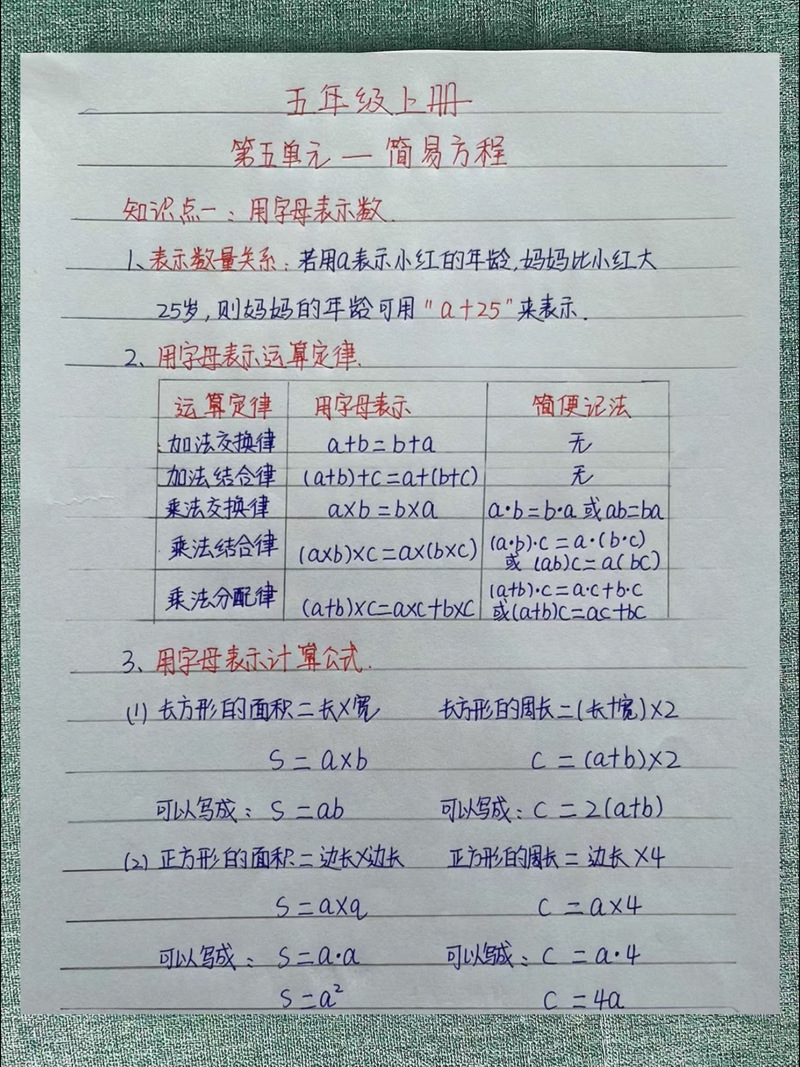 五年级上册
第五单元—简易方程
知识点一：用字母表示数.
1、表示数量关系：若用a表示小红的年龄,妈妈比小红大
25岁,则妈妈的年龄可用"a+25"来表示.
2、用字母表示运算定律.
运算定律 用字母表示 简便记法
加法交换律 a+b=b+a 无
加法结合律 (a+b)+c=a+(b+c) 无
乘法交换律 a×b=b×a a·b=b·a 或ab=ba
乘法结合律 (a×b)×c=a×(b×c) (a·b)·c=a·(b·c)
或 (ab)c=a(bc)
乘法分配律 (a+b)×c=a×c+b×c (a+b)·c=a·c+b·c
或(a+b)c=ac+bc
3、用字母表示计算公式.
(1) 长方形的面积=长×宽 长方形的周长=(长+宽)×2
S=a×b C=(a+b)×2
可以写成：S=ab 可以写成：C=2(a+b)
(2) 正方形的面积=边长×边长 正方形的周长=边长×4
S=a×a C=a×4
可以写成：S=a·a 可以写成：C=a·4
S=a² C=4a